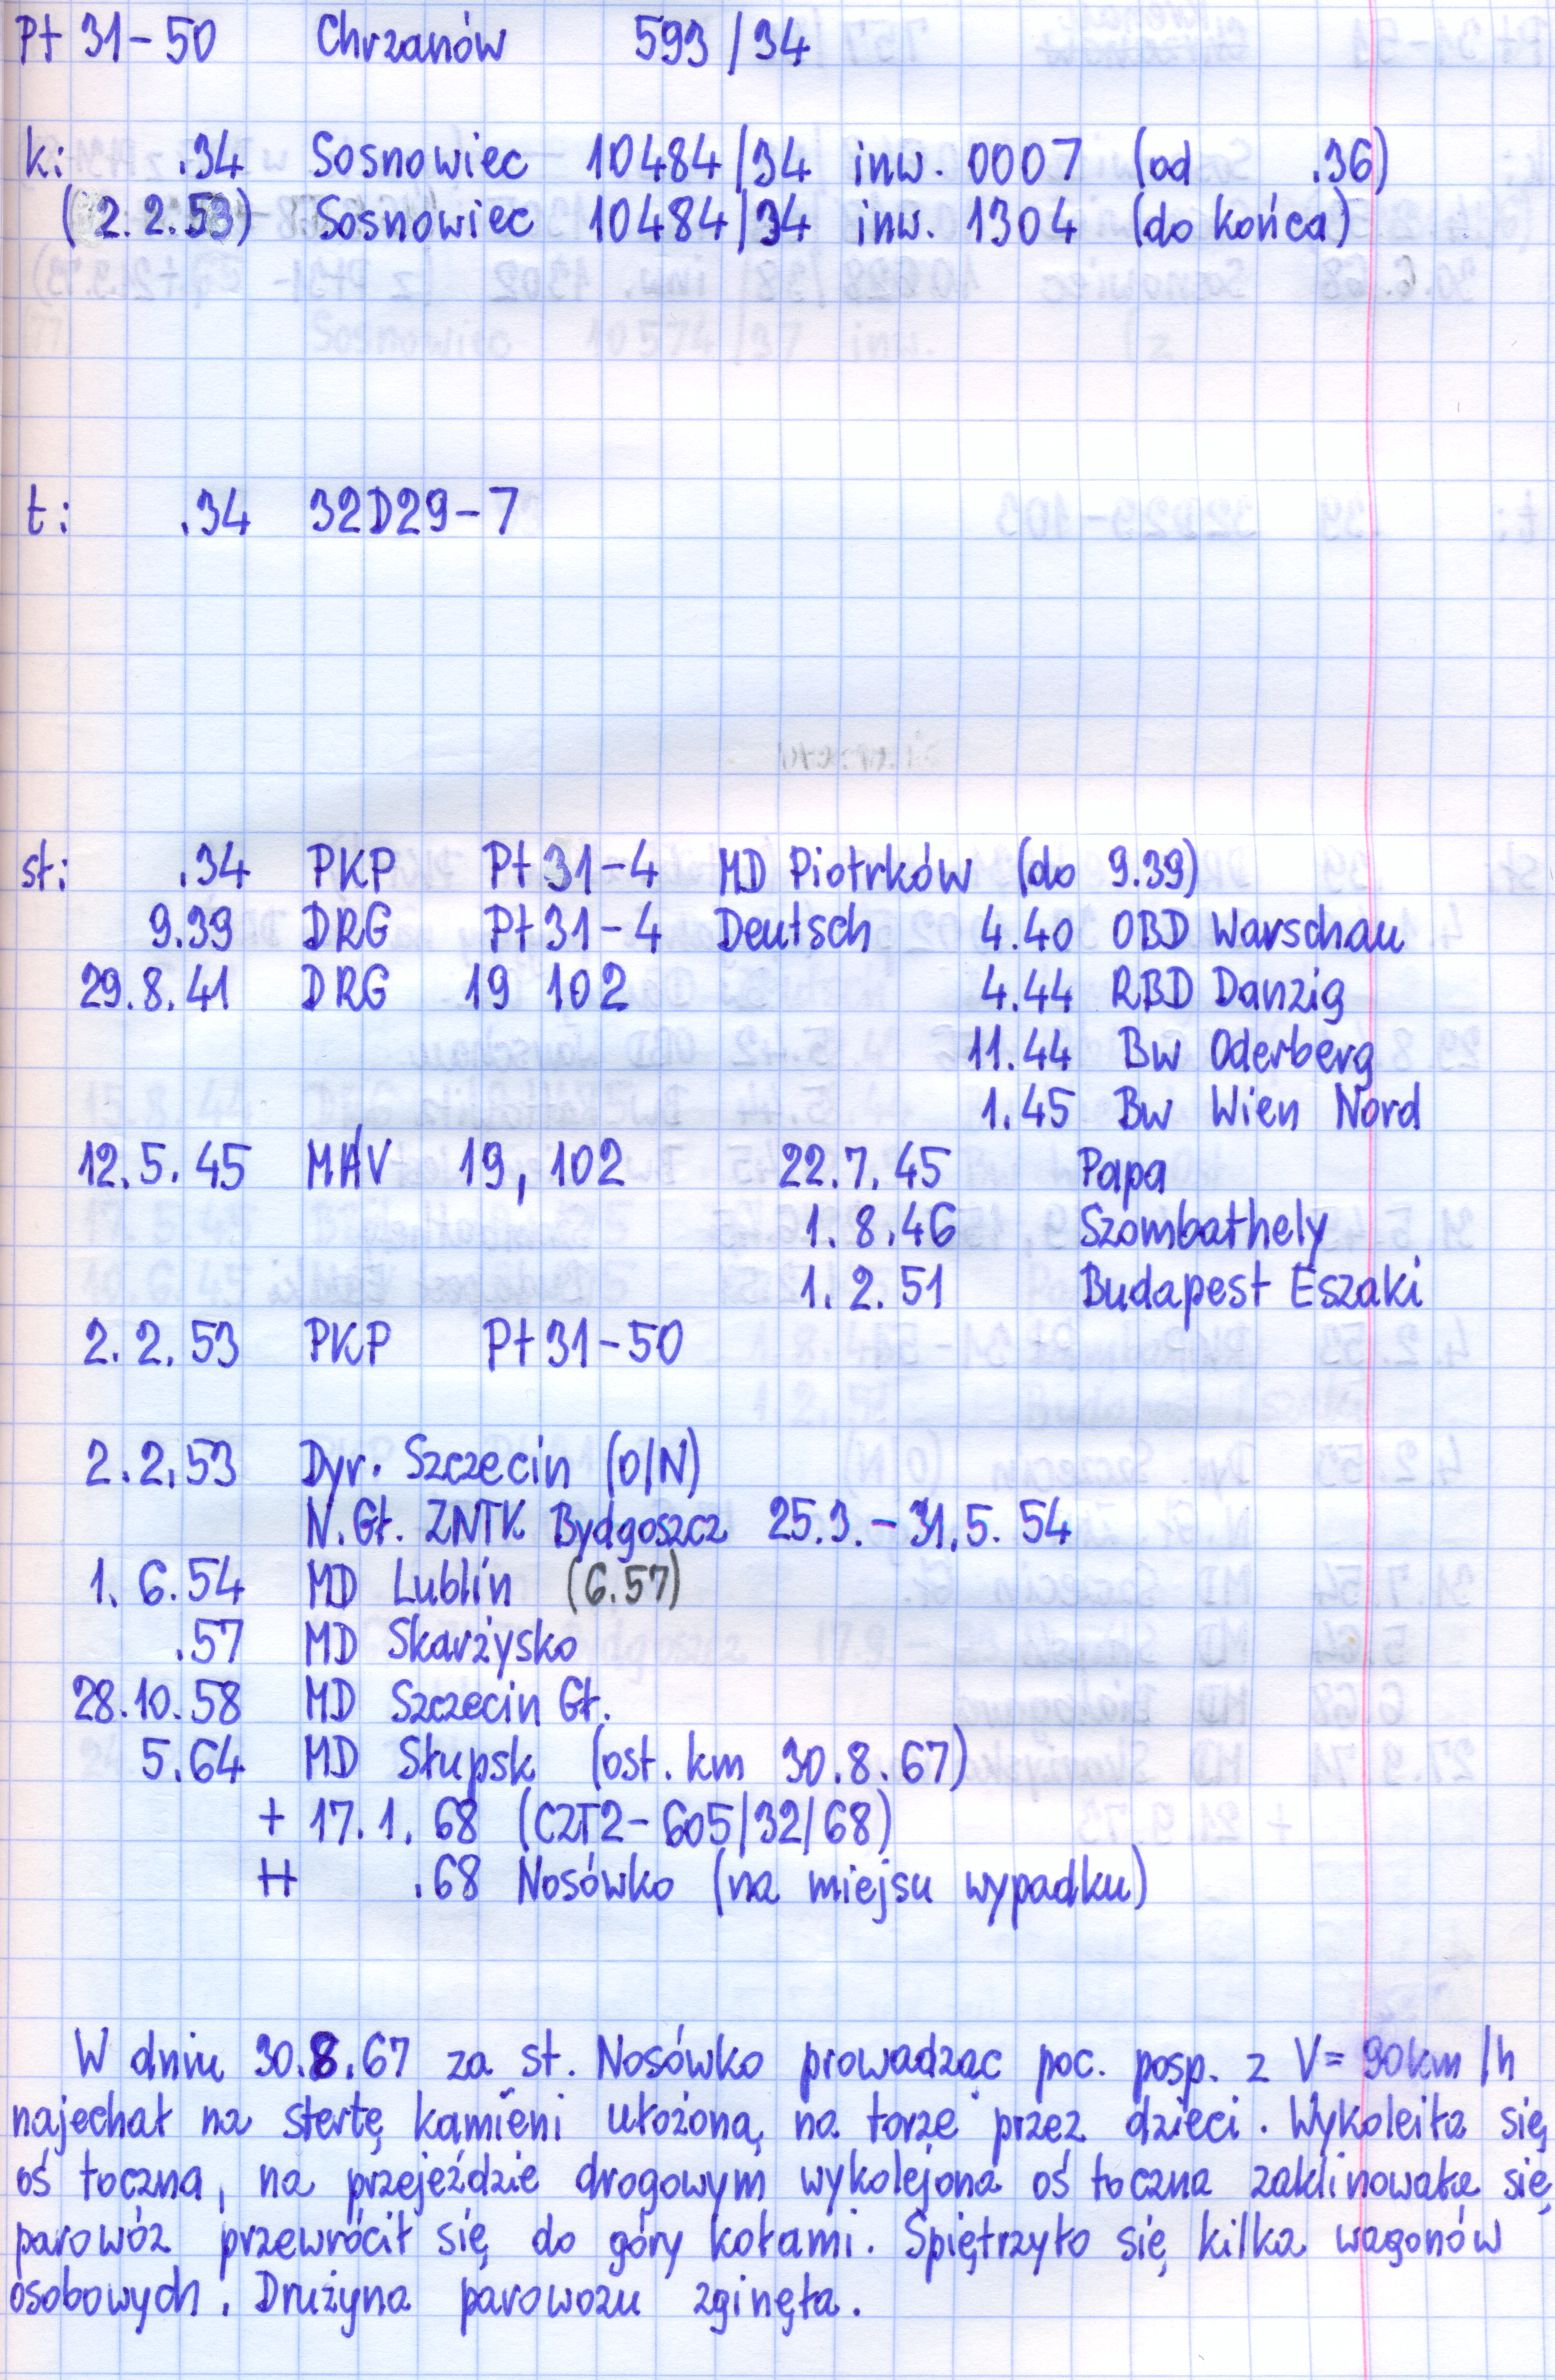 Pt 31-50 Chrzanów 593/34
k: .34 Sosnowiec 10484/34 inw. 0007 (od .36)
(2.2.53) Sosnowiec 10484/34 inw. 1304 (do końca)
Sosnowiec 10574/37 inw. (z
t: .34 32D29-7
st: .34 PKP Pt 31-4 MD Piotrków (do 9.39)
9.39 DRG Pt 31-4 Deutsch 4.40 OBD Warschau
29.8.41 DRG 19 102 4.44 RBD Danzig
11.44 Bw Oderberg
1.45 Bw Wien Nord
12.5.45 MÁV 19,102 22.7.45 Papa
1.8.46 Szombathely
1.2.51 Budapest Eszaki
2.2.53 PKP Pt 31-50
2.2.53 Dyr. Szczecin (O/N)
N.Gł. ZNTK Bydgoszcz 25.3.-31.5.54
1.6.54 MD Lublin (6.57)
.57 MD Skarżysko
28.10.58 MD Szczecin Gł.
5.64 MD Słupsk (ost. km 30.8.67)
+ 17.1.68 (CZT2-605/32/68)
++ .68 Nosówko (na miejsu wypadku)
W dniu 30.8.67 za st. Nosówko prowadząc poc. posp. z V=90km/h
najechał na stertę kamieni ułożoną na torze przez dzieci. Wykoleiła się
oś toczna, na przejeździe drogowym wykolejona oś toczna zaklinowała się
parowóz przewrócił się do góry kołami. Spiętrzyło się kilka wagonów
osobowych. Drużyna parowozu zginęła.